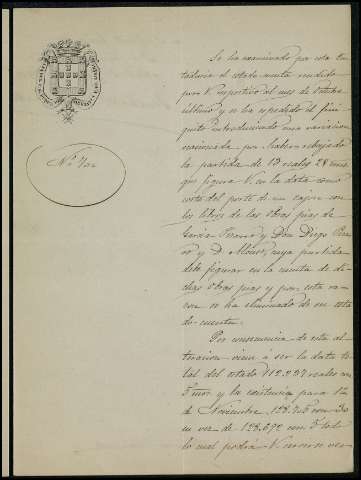 Nº 722
Se ha examinado por esta Con
taduria el estado cuenta rendido
por V. respectivo al mes de Octubre
último y se ha espedido el fini
quito introduciendo una variacion
ocasionada por haberse rebajado
la partida de 13 reales 28 cms
que figura V. en la data como
costo del porte de un cajon con
los libros de las obras pias de
Garcia y Don Diego
y D. cuya partida
debe figurar en la cuenta de di
chas obras pias y por esta ra
zon se ha eliminado de su esta
do cuenta.
Por consecuencia de esta al
teracion viene á ser la data to
tal del estado 112.237 reales
y la existencia para 1º
de Noviembre, 128.706 con 30
en vez de 128.692 con
lo cual podrá V.